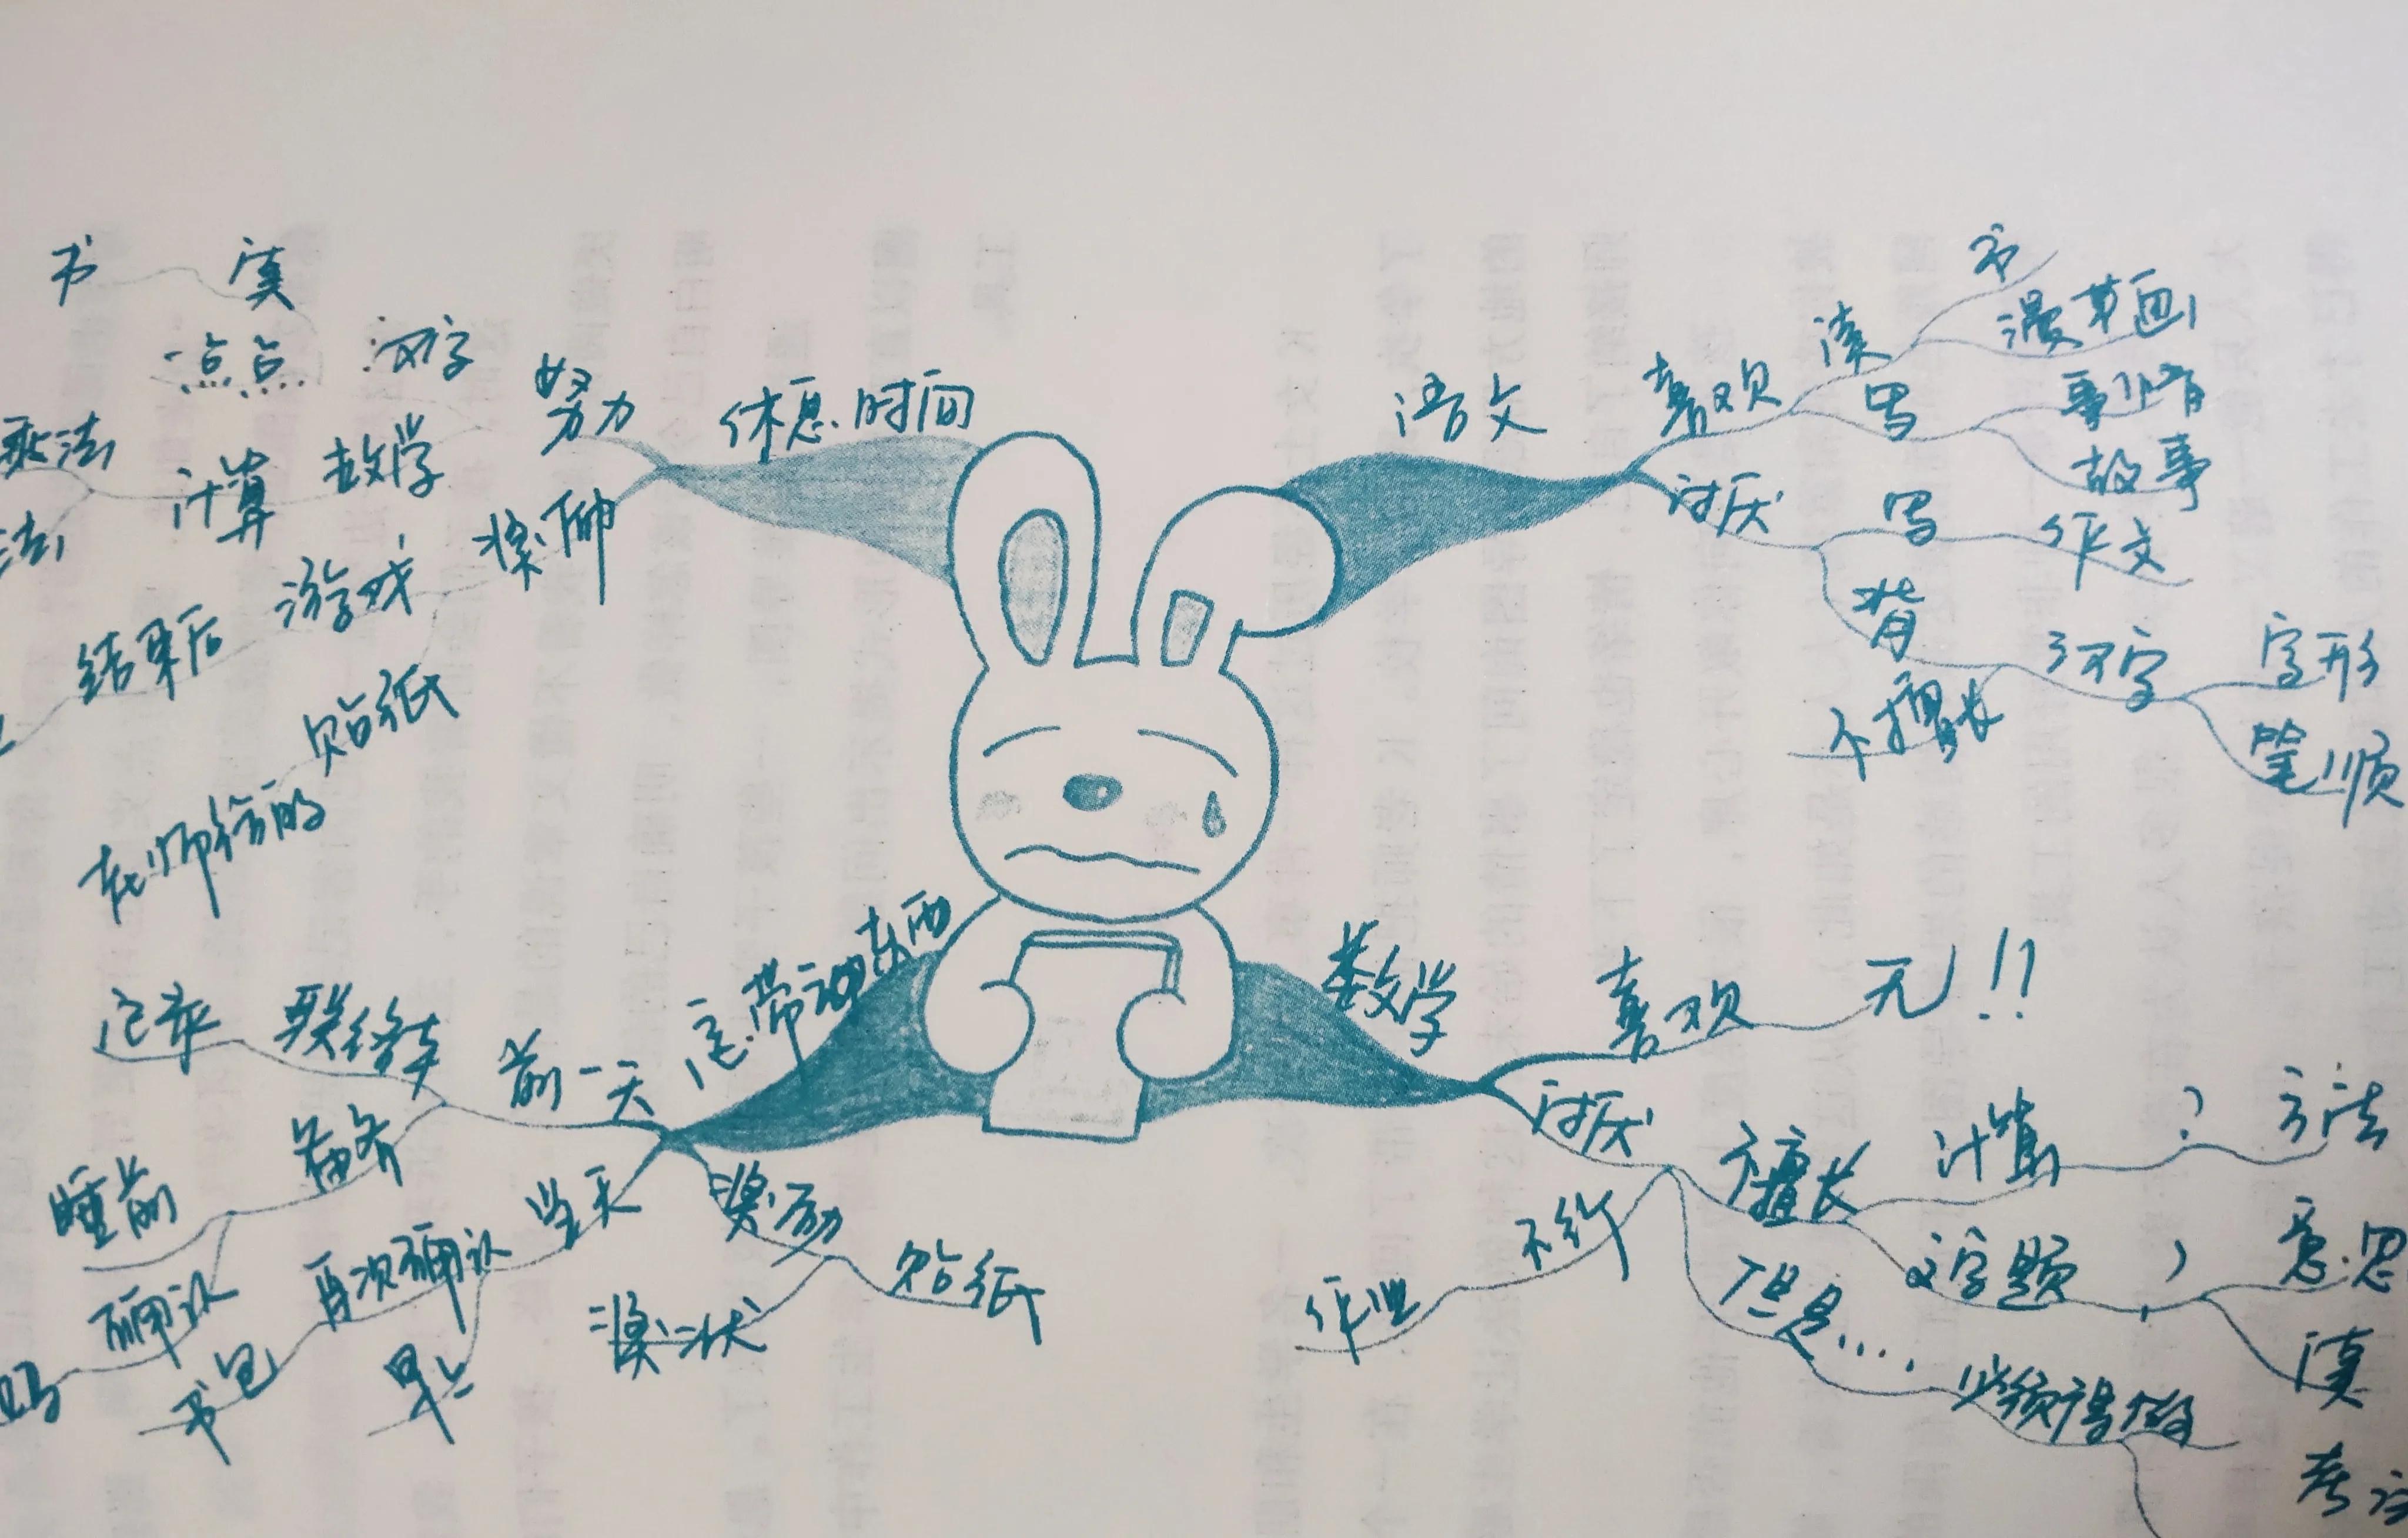 休息时间
努力
读
书
汉字
点点
数学
计算
乘法
法
奖励
游戏
结束后
贴纸
老师给的
语文
喜欢
读
书
漫画
写
事情
故事
讨厌
写
作文
背
汉字
字形
笔顺
不擅长
忘带的东西
前一天
联络本
记录
准备
睡前
确认
妈
当天
再次确认
书包
早上
奖励
贴纸
奖状
数学
喜欢
无!!
讨厌
不擅长
计算
?
方法
文字题
?
意思
读
但是....
必须得做
不行
作业